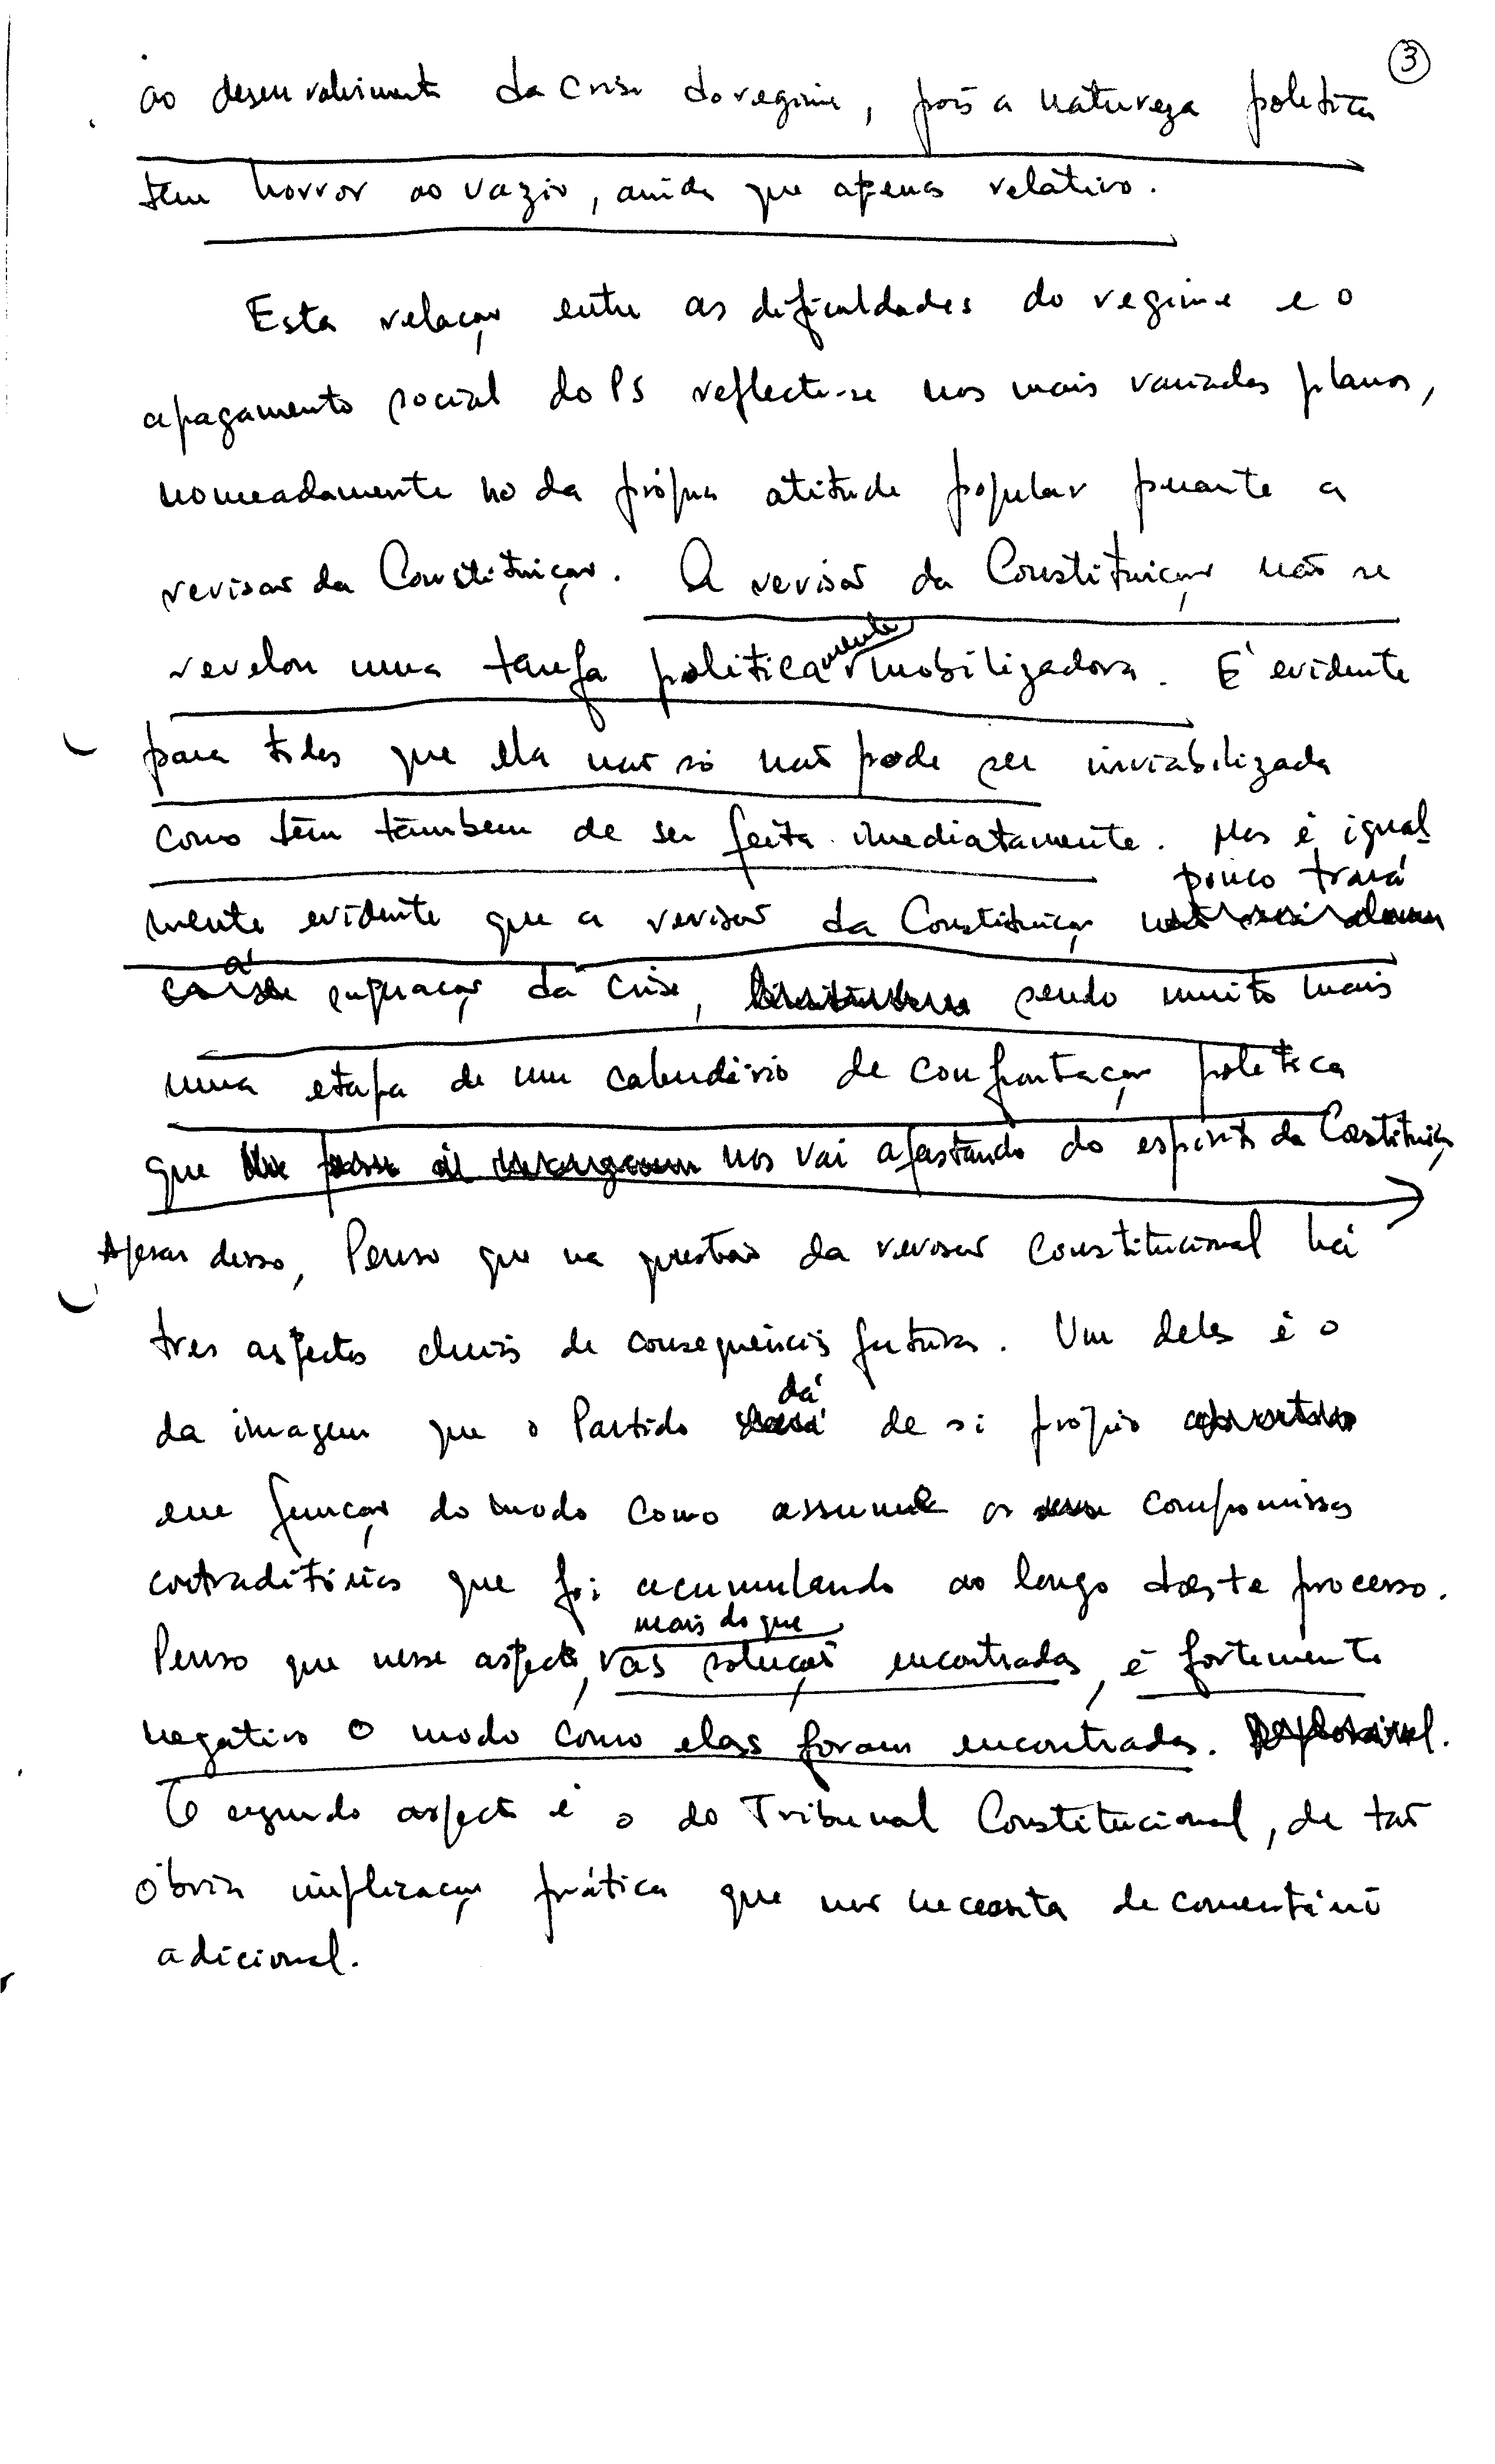 3
ao desenvolvimento da crise do regime, pois a natureza política
tem horror ao vazio, ainda que apenas relativo.
Esta relação entre as dificuldades do regime e o
apagamento social do PS reflecte-se nos mais variados planos,
nomeadamente no da própria atitude popular perante a
revisão da Constituição. A revisão da Constituição não se
revelou uma tarefa politicamente mobilizadora. É evidente
para todos que ela não só não pode ser inviabilizada
como tem também de ser feita imediatamente. Mas é igual
pouco trará
mente evidente que a revisão da Constituição
à superação da crise, sendo muito mais
uma etapa de um calendário de confrontação política
que nos vai afastando do espírito da Constituição
Apesar disso, Penso que na questão da revisão constitucional há
tres aspectos cheios de consequências futuras. Um deles é o
dá
da imagem que o Partido de si próprio
em função do modo como assume os compromissos
contraditórios que foi acumulando ao longo deste processo.
mais do que
Penso que nesse aspecto, as soluções encontradas, é fortemente
negativo o modo como elas foram encontradas.
O segundo aspecto é o do Tribunal Constitucional, de tão
óbvia implicação prática que não necessita de comentário
adicional.